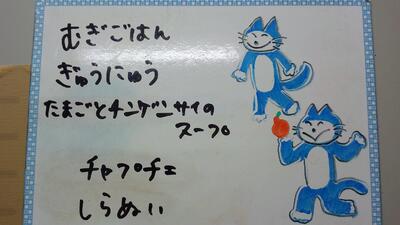 むぎごはん
ぎゅうにゅう
たまごとチンゲンサイの
スープ
チャプチェ
しらぬい